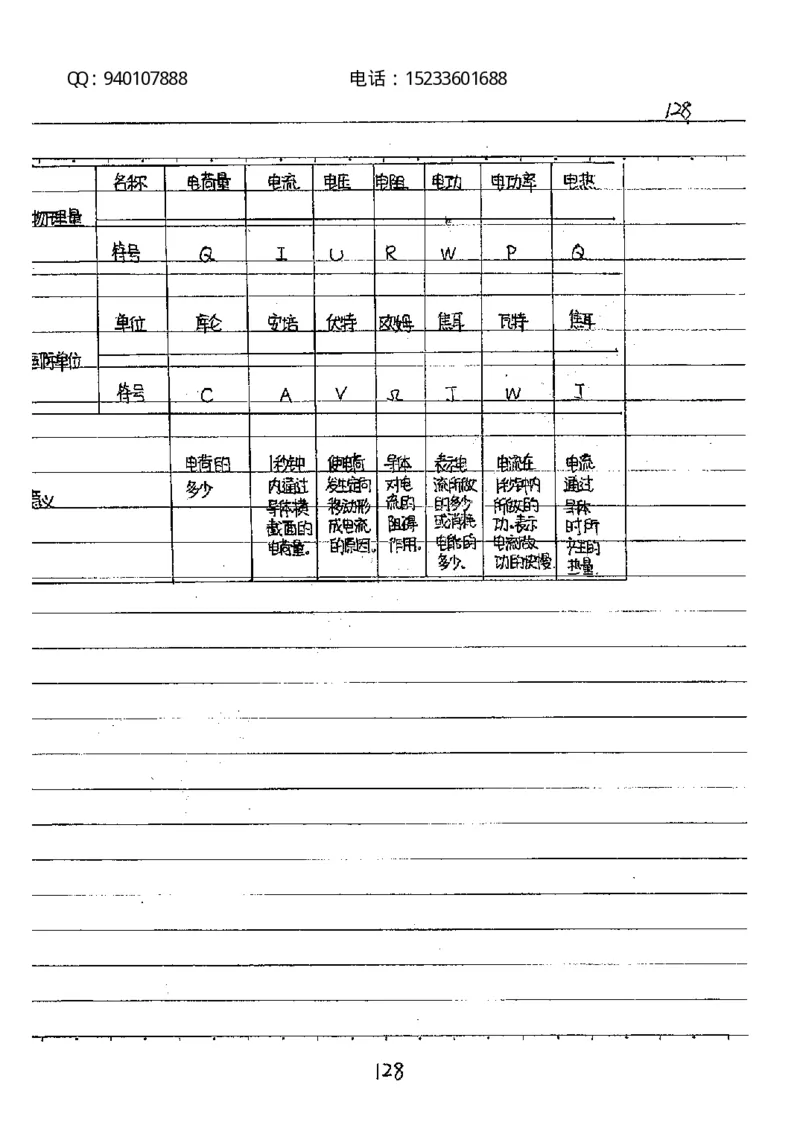 QQ：940107888 电话：15233601688
128
名称 电荷量 电流 电压 电阻 电功 电功率 电热
物理量
符号 Q I U R W P Q
单位 库仑 安培 伏特 欧姆 焦耳 瓦特 焦耳
国际单位
符号 C A V Ω J W J
电荷的 1秒钟 使电荷 导体 表示电 电流在 电流
多少 内通过 发生定向 对电 流所做 1秒钟内 通过
意义 导体横 移动形 流的 的多少 所做的 导体
截面的 成电流 阻碍 或消耗 功.表示 时所
电荷量。 的原因。 作用。 电能的 电流做 产生的
多少、 功的快慢 热量.
128